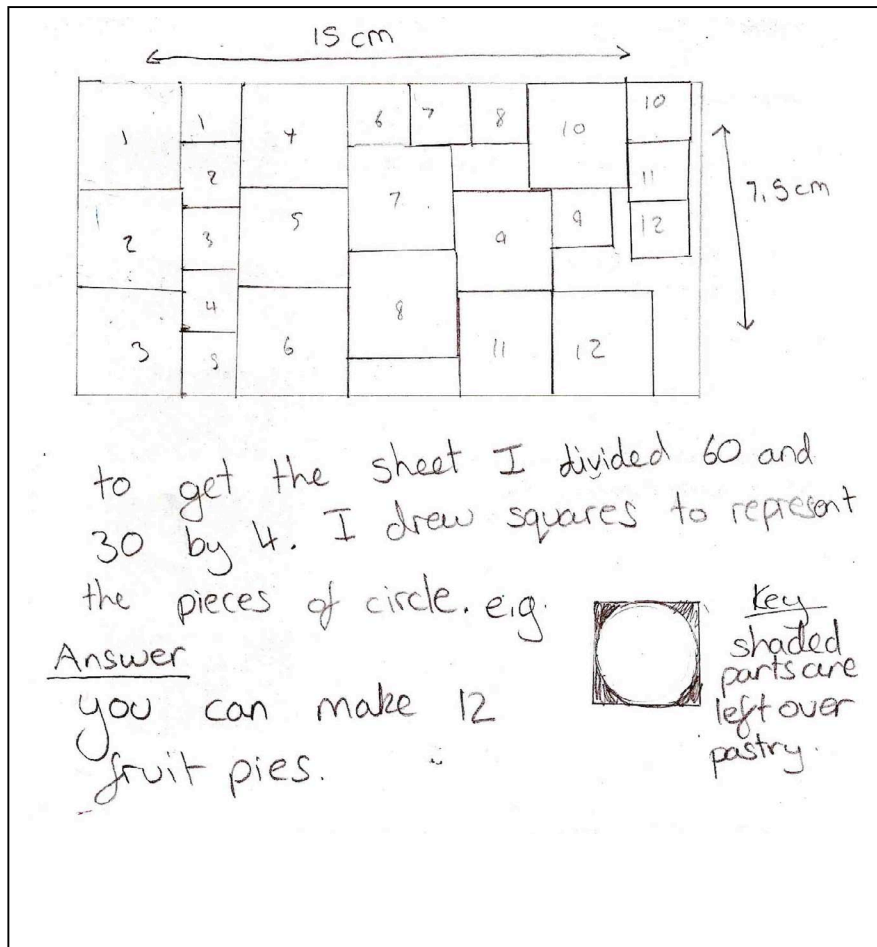 15 cm
1 1 4 6 7 8 10 10
2 7 11 7,5cm
2 3 5 9 9 12
4 8
3 5 6 11 12
to get the sheet I divided 60 and
30 by 4. I drew squares to represent
the pieces of circle. e.g.
Key
shaded
parts are
left over
pastry.
Answer
you can make 12
fruit pies.